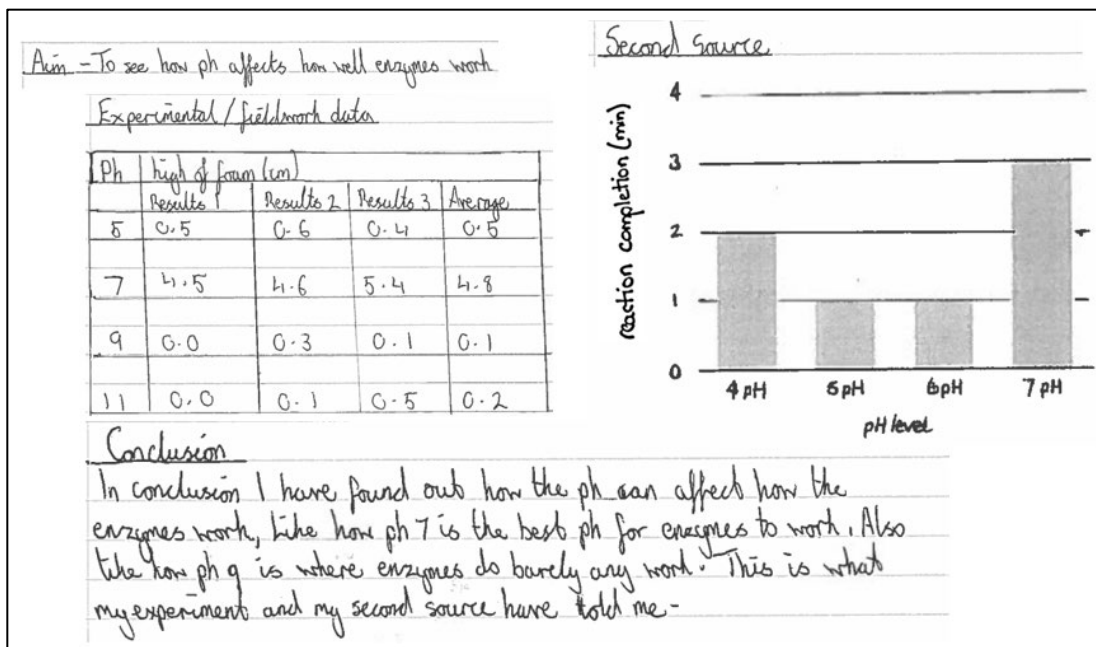 Aim - To see how ph affects how well enzymes work
Experimental / fieldwork data
Ph high of foam (cm)
Results 1 Results 2 Results 3 Average
5 0.5 0.6 0.4 0.5
7 4.5 4.6 5.4 4.8
9 0.0 0.3 0.1 0.1
11 0.0 0.1 0.5 0.2
Second Source
reaction completion (min)
4
3
2
1
0
4 pH 5 pH 6 pH 7 pH
pH level
Conclusion
In conclusion I have found out how the ph can affect how the
enzymes work, Like how ph 7 is the best ph for enzymes to work. Also
like how ph 9 is where enzymes do barely any work. This is what
my experiment and my second source have told me-